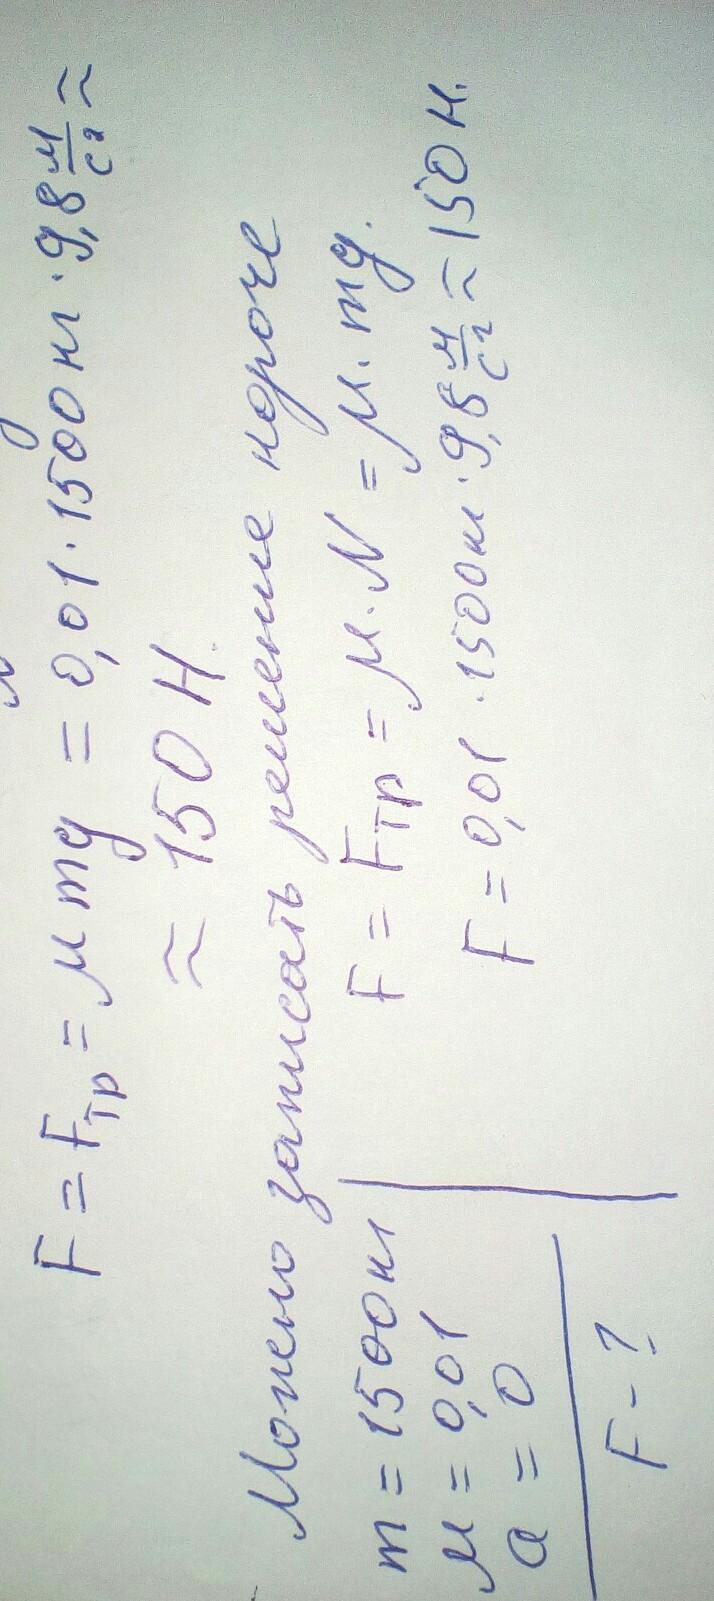 F = Fтр = μmg = 0,01 · 1500кг · 9,8 м/с² ≈
≈ 150 Н.
Можено записать решение короче
m = 1500кг
μ = 0,01
a = 0
F - ?
F = Fтр = μ · N = μ · mg.
F = 0,01 · 1500кг · 9,8 м/с² ≈ 150 Н.